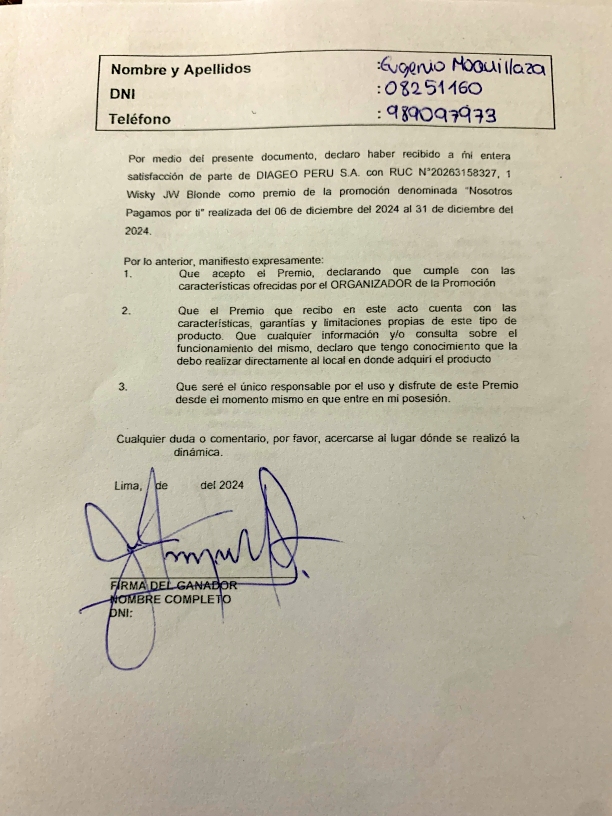 Nombre y Apellidos :Eugenio Moquillaza
DNI :08251160
Teléfono : 989097973
Por medio del presente documento, declaro haber recibido a mi entera
satisfacción de parte de DIAGEO PERU S.A. con RUC N°20263158327, 1
Wisky JW Blonde como premio de la promoción denominada "Nosotros
Pagamos por ti" realizada del 06 de diciembre del 2024 al 31 de diciembre del
2024.
Por lo anterior, manifiesto expresamente:
1. Que acepto el Premio, declarando que cumple con las
características ofrecidas por el ORGANIZADOR de la Promoción
2. Que el Premio que recibo en este acto cuenta con las
características, garantías y limitaciones propias de este tipo de
producto. Que cualquier información y/o consulta sobre el
funcionamiento del mismo, declaro que tengo conocimiento que la
debo realizar directamente al local en donde adquirí el producto
3. Que seré el único responsable por el uso y disfrute de este Premio
desde el momento mismo en que entre en mi posesión.
Cualquier duda o comentario, por favor, acercarse al lugar dónde se realizó la
dinámica.
Lima, de del 2024
FIRMA DEL GANADOR
NOMBRE COMPLETO
DNI: